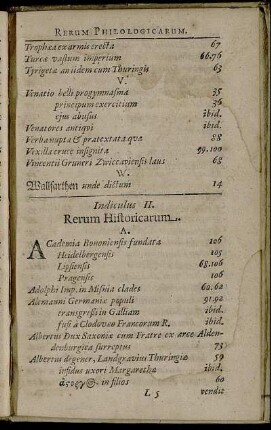 RERUM PHILOLOGICARUM.
Trophæa ex armis erecta 67
Turcæ vastum imperium 66.76
Tyrigetæ an iidem cum Thuringis 63
V.
Venatio belli progymnasma 35
principum exercitium 36
ejus abusus ibid.
Venatores antiqvi ibid.
Verba nupta & prætextata qvæ 88
Vexilla cruce insignita 59.100
Vincentii Gruneri Zwiccaviensis laus 68
W.
Wallfarthen unde dictum 14
Indiculus II.
Rerum Historicarum.
A.
ACademia Bononiensis fundata 106
Heidelbergensis 105
Lipsiensis 68.106
Pragensis 106
Adolphi Imp. in Misnia clades 60.62
Alemanni Germaniæ populi 91.92
transgressi in Galliam ibid.
fusi à Clodoveo Francorum R. ibid.
Albertus Dux Saxoniæ cum Fratre ex arce Alden-
denburgica surrepens 75
Albertus degener, Landgravius Thuringiæ 59
infidus uxori Margarethæ ibid.
in filios 60
L 5 vendit